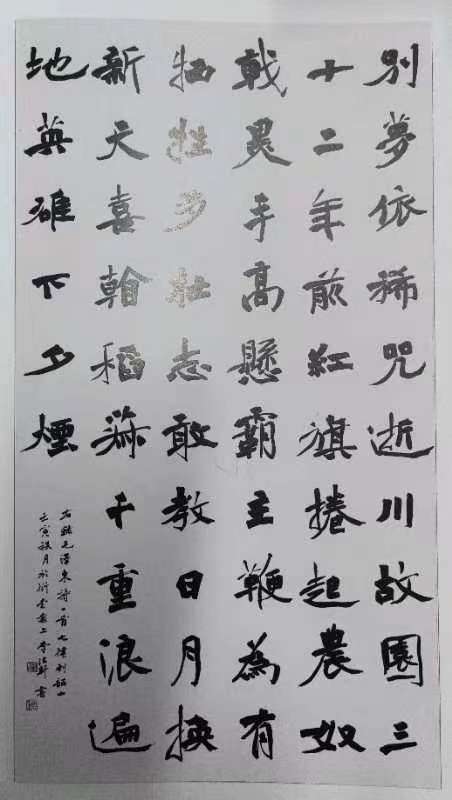 別夢依稀咒逝川故園三
十二年前紅旗捲起農奴
戟黑手高懸霸主鞭為有
牺牲多壯志敢教日月換
新天喜看稻菽千重浪遍
地英雄下夕煙
右錄毛澤東詩一首七律到韶山
壬寅秋月於 書